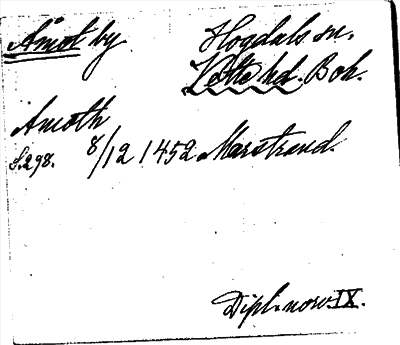 Åmot by Hogdals sn.
Vette hd. Boh.
Amoth
S. 298. 8/12 1452 Marstrand.
Dipl. norv. IX.